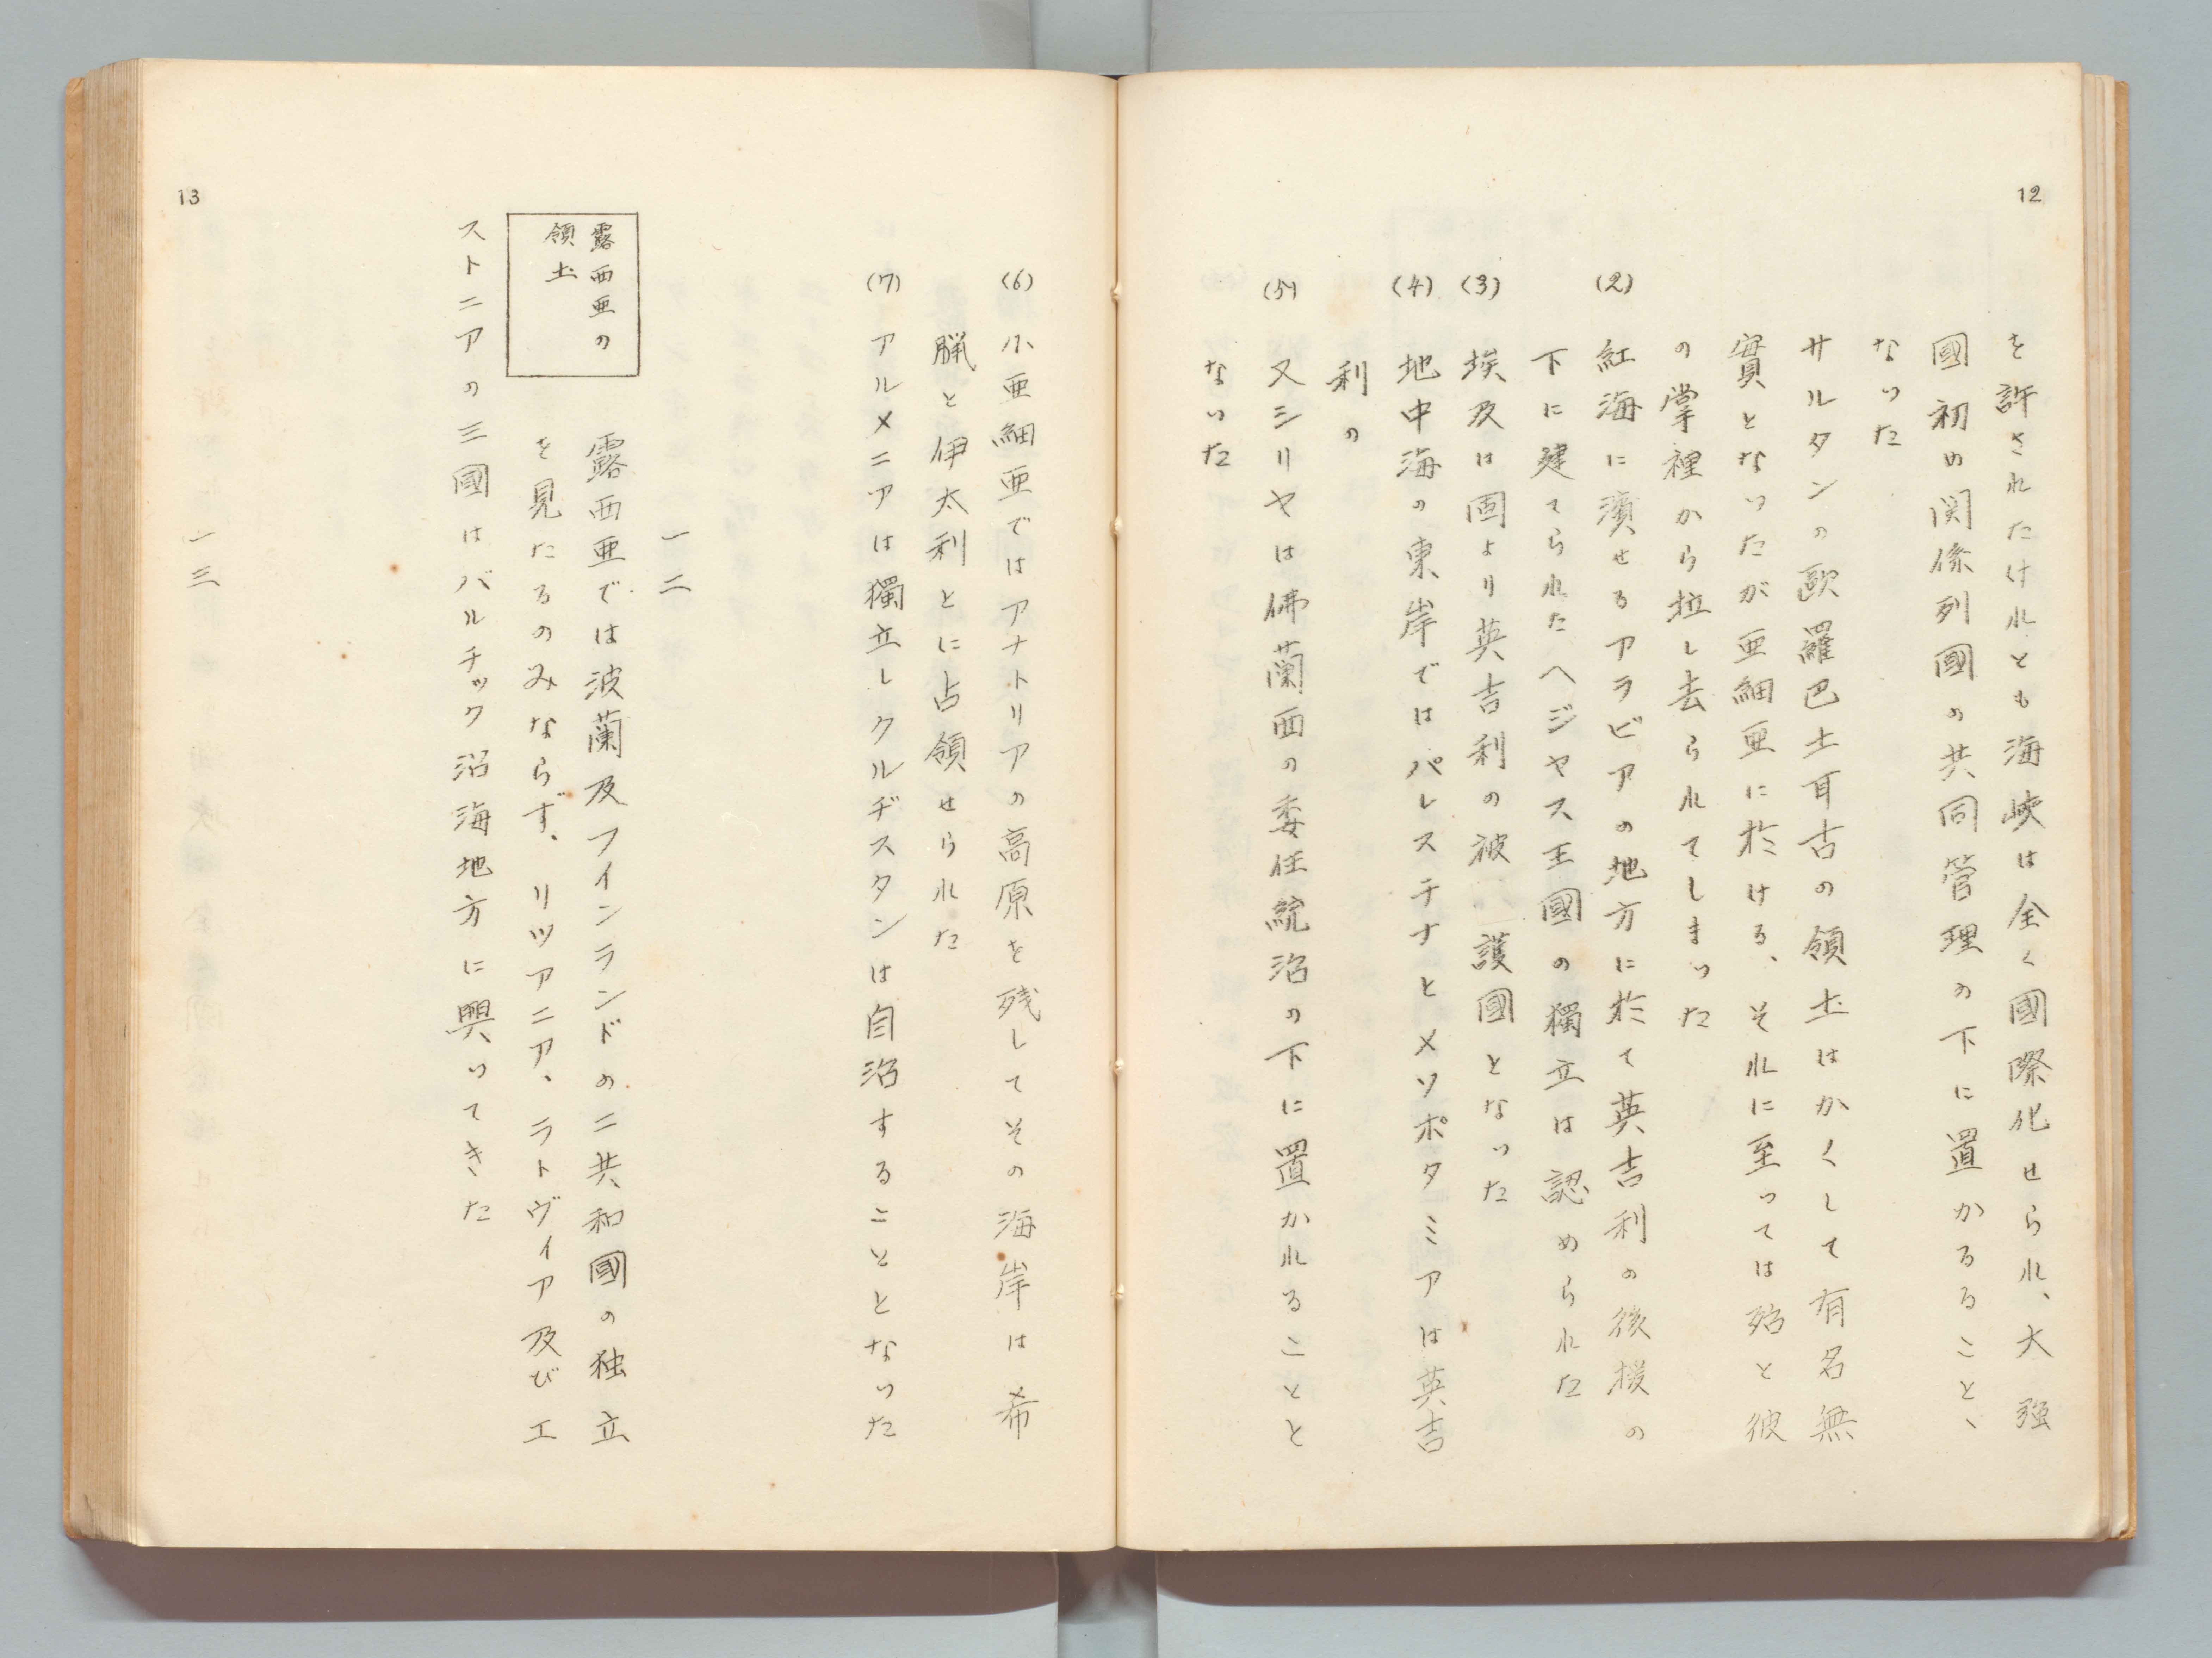 12
を許されたけれとも海峡は全く國際化せられ、大強
國初め関係列國の共同管理の下に置かるること、
なつた
サルタンの歐羅巴土耳古の領土はかくして有名無
實となつたが亜細亜に於ける、それに至っては殆と彼
の掌裡から拉し去られてしまつた
(2) 紅海に濱せるアラビアの地方に於て英吉利の後援の
下に建てられたヘジヤス王國の獨立は認められた
(3) 埃及は固より英吉利の被護國となつた
(4) 地中海の東岸ではパレスチナとメソポタミアは英吉
利の
(5) 又シリヤは佛蘭西の委任統治の下に置かれることと
なつた
(6) 小亜細亜ではアナトリアの高原を残してその海岸は希
臘と伊太利とに占領せられた
(7) アルメニアは獨立しクルヂスタンは自治することとなつた
一二
露西亜の
領土
露西亜では波蘭及フインランドの二共和國の独立
を見たるのみならず、リツアニア、ラトヴィア及びエ
ストニアの三國はバルチック沿海地方に興つてきた
一三
13